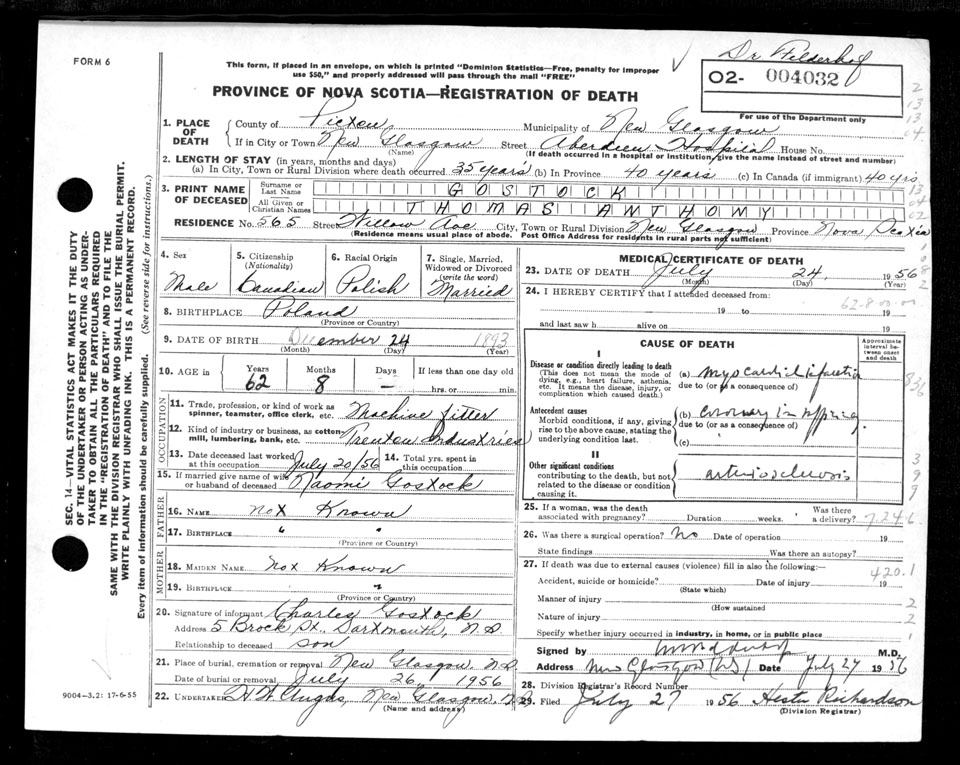 Dr Wilderhof
FORM 6
This form, if placed in an envelope, on which is printed "Dominion Statistics—Free, penalty for improper
use $50," and properly addressed will pass through the mail "FREE"
O2- 004032
For use of the Department only
PROVINCE OF NOVA SCOTIA—REGISTRATION OF DEATH
1. PLACE OF DEATH County of Pictou Municipality of New Glasgow
If in City or Town New Glasgow (Name) Street Aberdeen Hospital House No.
(If death occurred in a hospital or institution, give the name instead of street and number)
2. LENGTH OF STAY (in years, months and days)
(a) In City, Town or Rural Division where death occurred 35 years (b) In Province 40 years (c) In Canada (if immigrant) 40 yrs.
3. PRINT NAME OF DECEASED Surname or Last Name GOSTOCK
All Given or Christian Names THOMAS ANTHONY
RESIDENCE No. 565 Street Willow Ave City, Town or Rural Division New Glasgow Province Nova Scotia
(Residence means usual place of abode. Post Office Address for residents in rural parts not sufficient)
4. Sex Male
5. Citizenship (Nationality) Canadian
6. Racial Origin Polish
7. Single, Married, Widowed or Divorced (write the word) Married
8. BIRTHPLACE Poland
(Province or Country)
9. DATE OF BIRTH December 24 1893
(Month) (Day) (Year)
10. AGE in Years 62 Months 8 Days — If less than one day old
hrs. or min.
OCCUPATION
11. Trade, profession, or kind of work as spinner, teamster, office clerk, etc. Machine fitter
12. Kind of industry or business, as cotton-mill, lumbering, bank, etc. Trenton Industries
13. Date deceased last worked at this occupation July 20/56 14. Total yrs. spent in this occupation
15. If married give name of wife or husband of deceased Naomi Gostock
FATHER
16. NAME not Known
17. BIRTHPLACE " "
(Province or Country)
MOTHER
18. MAIDEN NAME Not Known
19. BIRTHPLACE "
(Province or Country)
20. Signature of informant Charles Gostock
Address 5 Brock St., Dartmouth, N.S.
Relationship to deceased son
21. Place of burial, cremation or removal New Glasgow, N.S.
Date of burial or removal July 26, 1956
22. UNDERTAKER H. W. Angus, New Glasgow, N.S.
(Name and address)
MEDICAL CERTIFICATE OF DEATH
23. DATE OF DEATH July 24 1956
(Month) (Day) (Year)
24. I HEREBY CERTIFY that I attended deceased from:
19 to 19
and last saw h alive on 19
CAUSE OF DEATH
Approximate interval between onset and death
I
Disease or condition directly leading to death
(This does not mean the mode of dying, e.g., heart failure, asthenia, etc. It means the disease, injury, or complication which caused death.)
(a) myocardial infarction
due to (or as a consequence of)
Antecedent causes
Morbid conditions, if any, giving rise to the above cause, stating the underlying condition last.
(b) coronary
due to (or as a consequence of)
(c)
II
Other significant conditions
contributing to the death, but not related to the disease or condition causing it.
arteriosclerosis
25. If a woman, was the death associated with pregnancy? Duration weeks. Was there a delivery?
26. Was there a surgical operation? No Date of operation 19
State findings Was there an autopsy?
27. If death was due to external causes (violence) fill in also the following:—
420.1
Accident, suicide or homicide? Date of injury 19
(State which)
Manner of injury
(How sustained)
Nature of injury
Specify whether injury occurred in industry, in home, or in public place
Signed by M.D.
Address New Glasgow (NS) Date July 27 1956
28. Division Registrar's Record Number
29. Filed July 27 1956 Hester Richardson
(Division Registrar)
SEC. 14—VITAL STATISTICS ACT MAKES IT THE DUTY
OF THE UNDERTAKER OR PERSON ACTING AS UNDER-
TAKER TO OBTAIN ALL THE PARTICULARS REQUIRED
IN THE "REGISTRATION OF DEATH" AND TO FILE THE
SAME WITH THE DIVISION REGISTRAR WHO SHALL ISSUE THE BURIAL PERMIT.
WRITE PLAINLY WITH UNFADING INK. THIS IS A PERMANENT RECORD.
Every item of information should be carefully supplied. (See reverse side for instructions.)
9004—3.2: 17-6-55